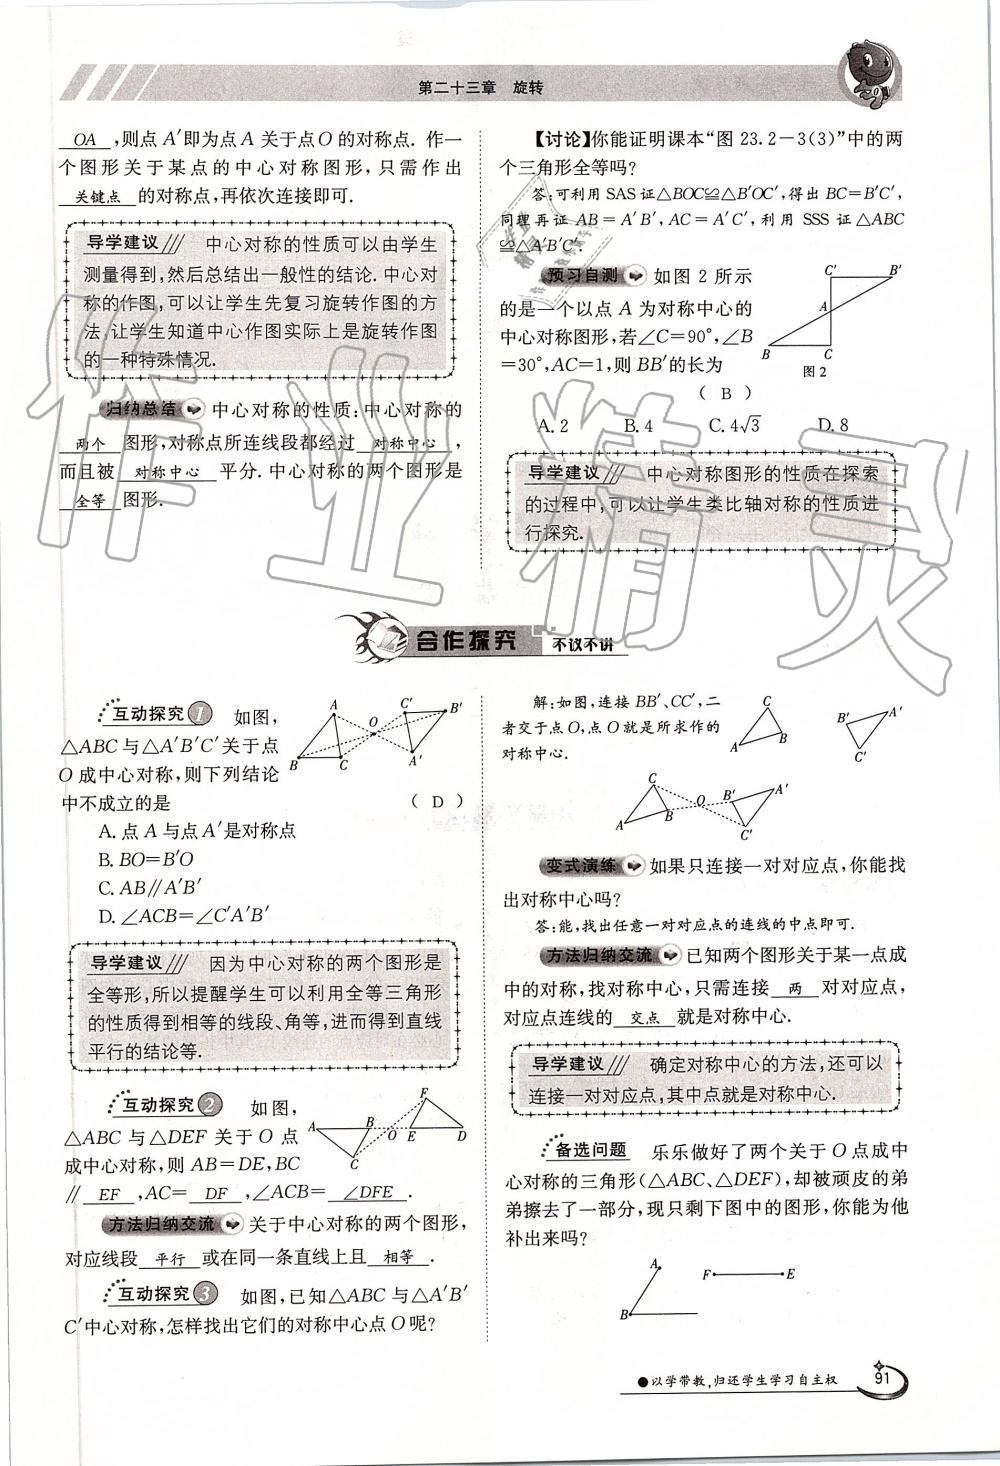 第二十三章 旋转
OA,则点 A′即为点 A 关于点 O 的对称点. 作一
个图形关于某点的中心对称图形,只需作出
关键点 的对称点,再依次连接即可.
导学建议 中心对称的性质可以由学生
测量得到,然后总结出一般性的结论. 中心对
称的作图,可以让学生先复习旋转作图的方
法,让学生知道中心作图实际上是旋转作图
的一种特殊情况.
归纳总结 中心对称的性质:中心对称的
两个 图形,对称点所连线段都经过 对称中心 ,
而且被 对称中心 平分. 中心对称的两个图形是
全等 图形.
【讨论】你能证明课本“图 23.2-3(3)”中的两
个三角形全等吗?
答:可利用 SAS 证△BOC≌△B′OC′,得出 BC=B′C′,
同理再证 AB=A′B′,AC=A′C′,利用 SSS 证△ABC
≌△A′B′C′.
预习自测 如图 2 所示
的是一个以点 A 为对称中心的
中心对称图形,若∠C=90°,∠B
=30°,AC=1,则 BB′的长为
( B )
C′ B′
A
B C
图 2
A. 2 B. 4 C. 4√3 D. 8
导学建议 中心对称图形的性质在探索
的过程中,可以让学生类比轴对称的性质进
行探究.
合作探究 不议不讲
互动探究 1 如图,
△ABC 与△A′B′C′关于点
O 成中心对称,则下列结论
中不成立的是 ( D )
A C′ B′
O
B C A′
A. 点 A 与点 A′是对称点
B. BO=B′O
C. AB∥A′B′
D. ∠ACB=∠C′A′B′
导学建议 因为中心对称的两个图形是
全等形,所以提醒学生可以利用全等三角形
的性质得到相等的线段、角等,进而得到直线
平行的结论等.
互动探究 2 如图,
△ABC 与△DEF 关于 O 点
成中心对称,则 AB=DE,BC
∥ EF ,AC= DF ,∠ACB= ∠DFE .
F
A B O E D
C
方法归纳交流 关于中心对称的两个图形,
对应线段 平行 或在同一条直线上且 相等 .
互动探究 3 如图,已知△ABC 与△A′B′
C′中心对称,怎样找出它们的对称中心点 O 呢?
解:如图,连接 BB′、CC′,二
者交于点 O,点 O 就是所求作的
对称中心.
C
A B
B′ A′
C′
C
A B O B′ A′
C′
变式演练 如果只连接一对对应点,你能找
出对称中心吗?
答:能,找出任意一对对应点的连线的中点即可.
方法归纳交流 已知两个图形关于某一点成
中的对称,找对称中心,只需连接 两 对对应点,
对应点连线的 交点 就是对称中心.
导学建议 确定对称中心的方法,还可以
连接一对对应点,其中点就是对称中心.
备选问题 乐乐做好了两个关于 O 点成中
心对称的三角形(△ABC、△DEF),却被顽皮的弟
弟擦去了一部分,现只剩下图中的图形,你能为他
补出来吗?
A
B
F E
●以学带教,归还学生学习自主权
91
作业精灵